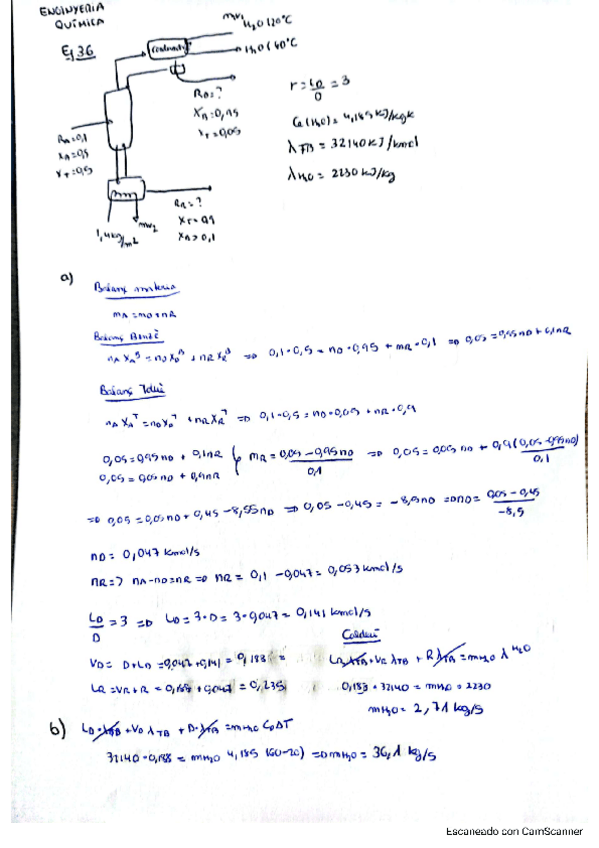 ENGINYERIA
QUÍMICA
Ej 36
mw1
H2O 120°C
H2O 140°C
RD=?
XB=0,95
XT=0,05
r = LD/D = 3
Ce(H2O)= 4,185 kJ/kgK
λTB = 32140 KJ/kmol
λH2O = 2230 kJ/kg
RA=0,1
XB=0,5
XT=0,5
RR=?
XT=0,9
XB=0,1
1,4 kg/m2
mw2
a) Balanç matèria
nA = nD + nR
Balanç Benzè
nA XA^B = nD XD^B + nR XR^B => 0,1·0,5 = nD·0,95 + nR·0,1 => 0,05 = 0,95nD + 0,1nR
Balanç Toluè
nA XA^T = nD XD^T + nR XR^T => 0,1·0,5 = nD·0,05 + nR·0,9
0,05 = 0,95 nD + 0,1nR
0,05 = 0,05 nD + 0,9nR
nR = (0,05 - 0,95 nD)/0,1 => 0,05 = 0,05 nD + 0,9 (0,05 - 0,95nD)/0,1
=> 0,05 = 0,05 nD + 0,45 - 8,55 nD => 0,05 - 0,45 = -8,5 nD => nD = (0,05 - 0,45)/-8,5
nD = 0,047 kmol/s
nR => nA - nD = nR => nR = 0,1 - 0,047 = 0,053 kmol/s
LD/D = 3 => LD = 3·D = 3·0,047 = 0,141 kmol/s
VD = D + LD = 0,047 + 0,141 = 0,188
LR = VR + R = 0,188 + 0,047 = 0,235
LR λTB + VR λTB + R λTB = mH2O λH2O
0,188·32140 = mH2O·2230
mH2O = 2,71 kg/s
b) LD·λTB + VD λTB + D·λTB = mH2O Ce ΔT
32140·0,188 = mH2O 4,185 (60-20) => mH2O = 36,1 kg/s
Escaneado con CamScanner